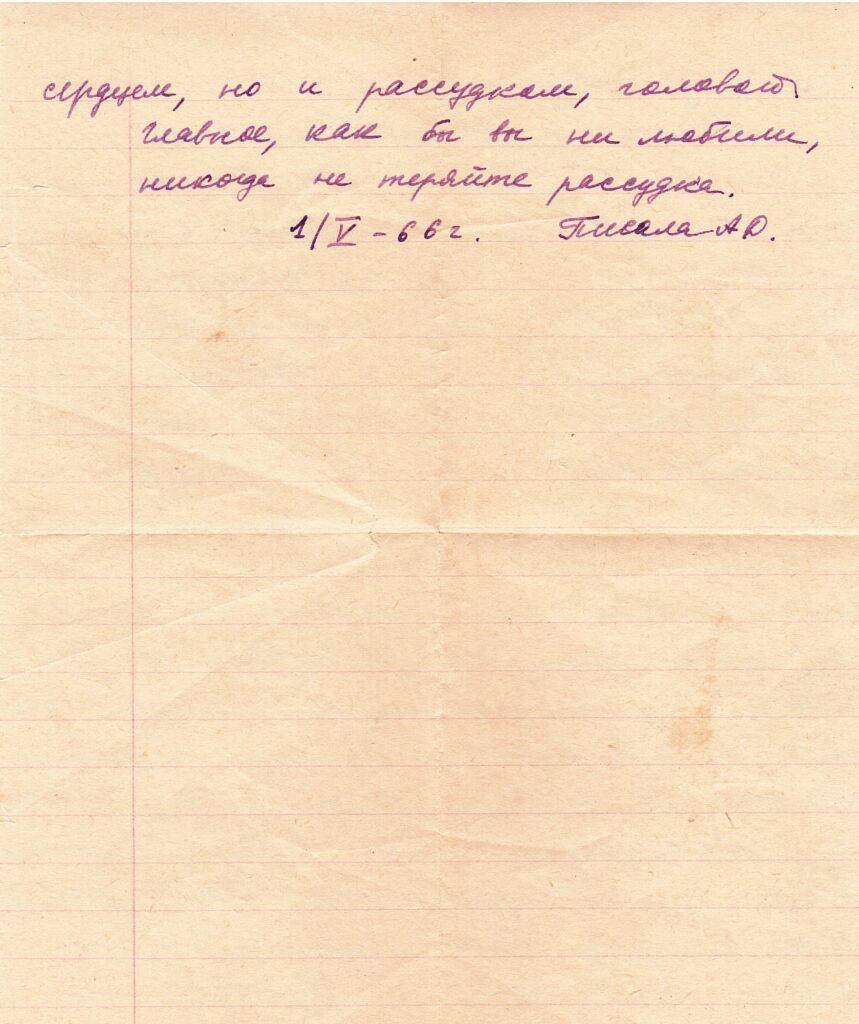 сердцем, но и рассудком, головой
главное, как бы вы ни любили,
никогда не теряйте рассудка.
1/V - 66 г. Писала А Ю.